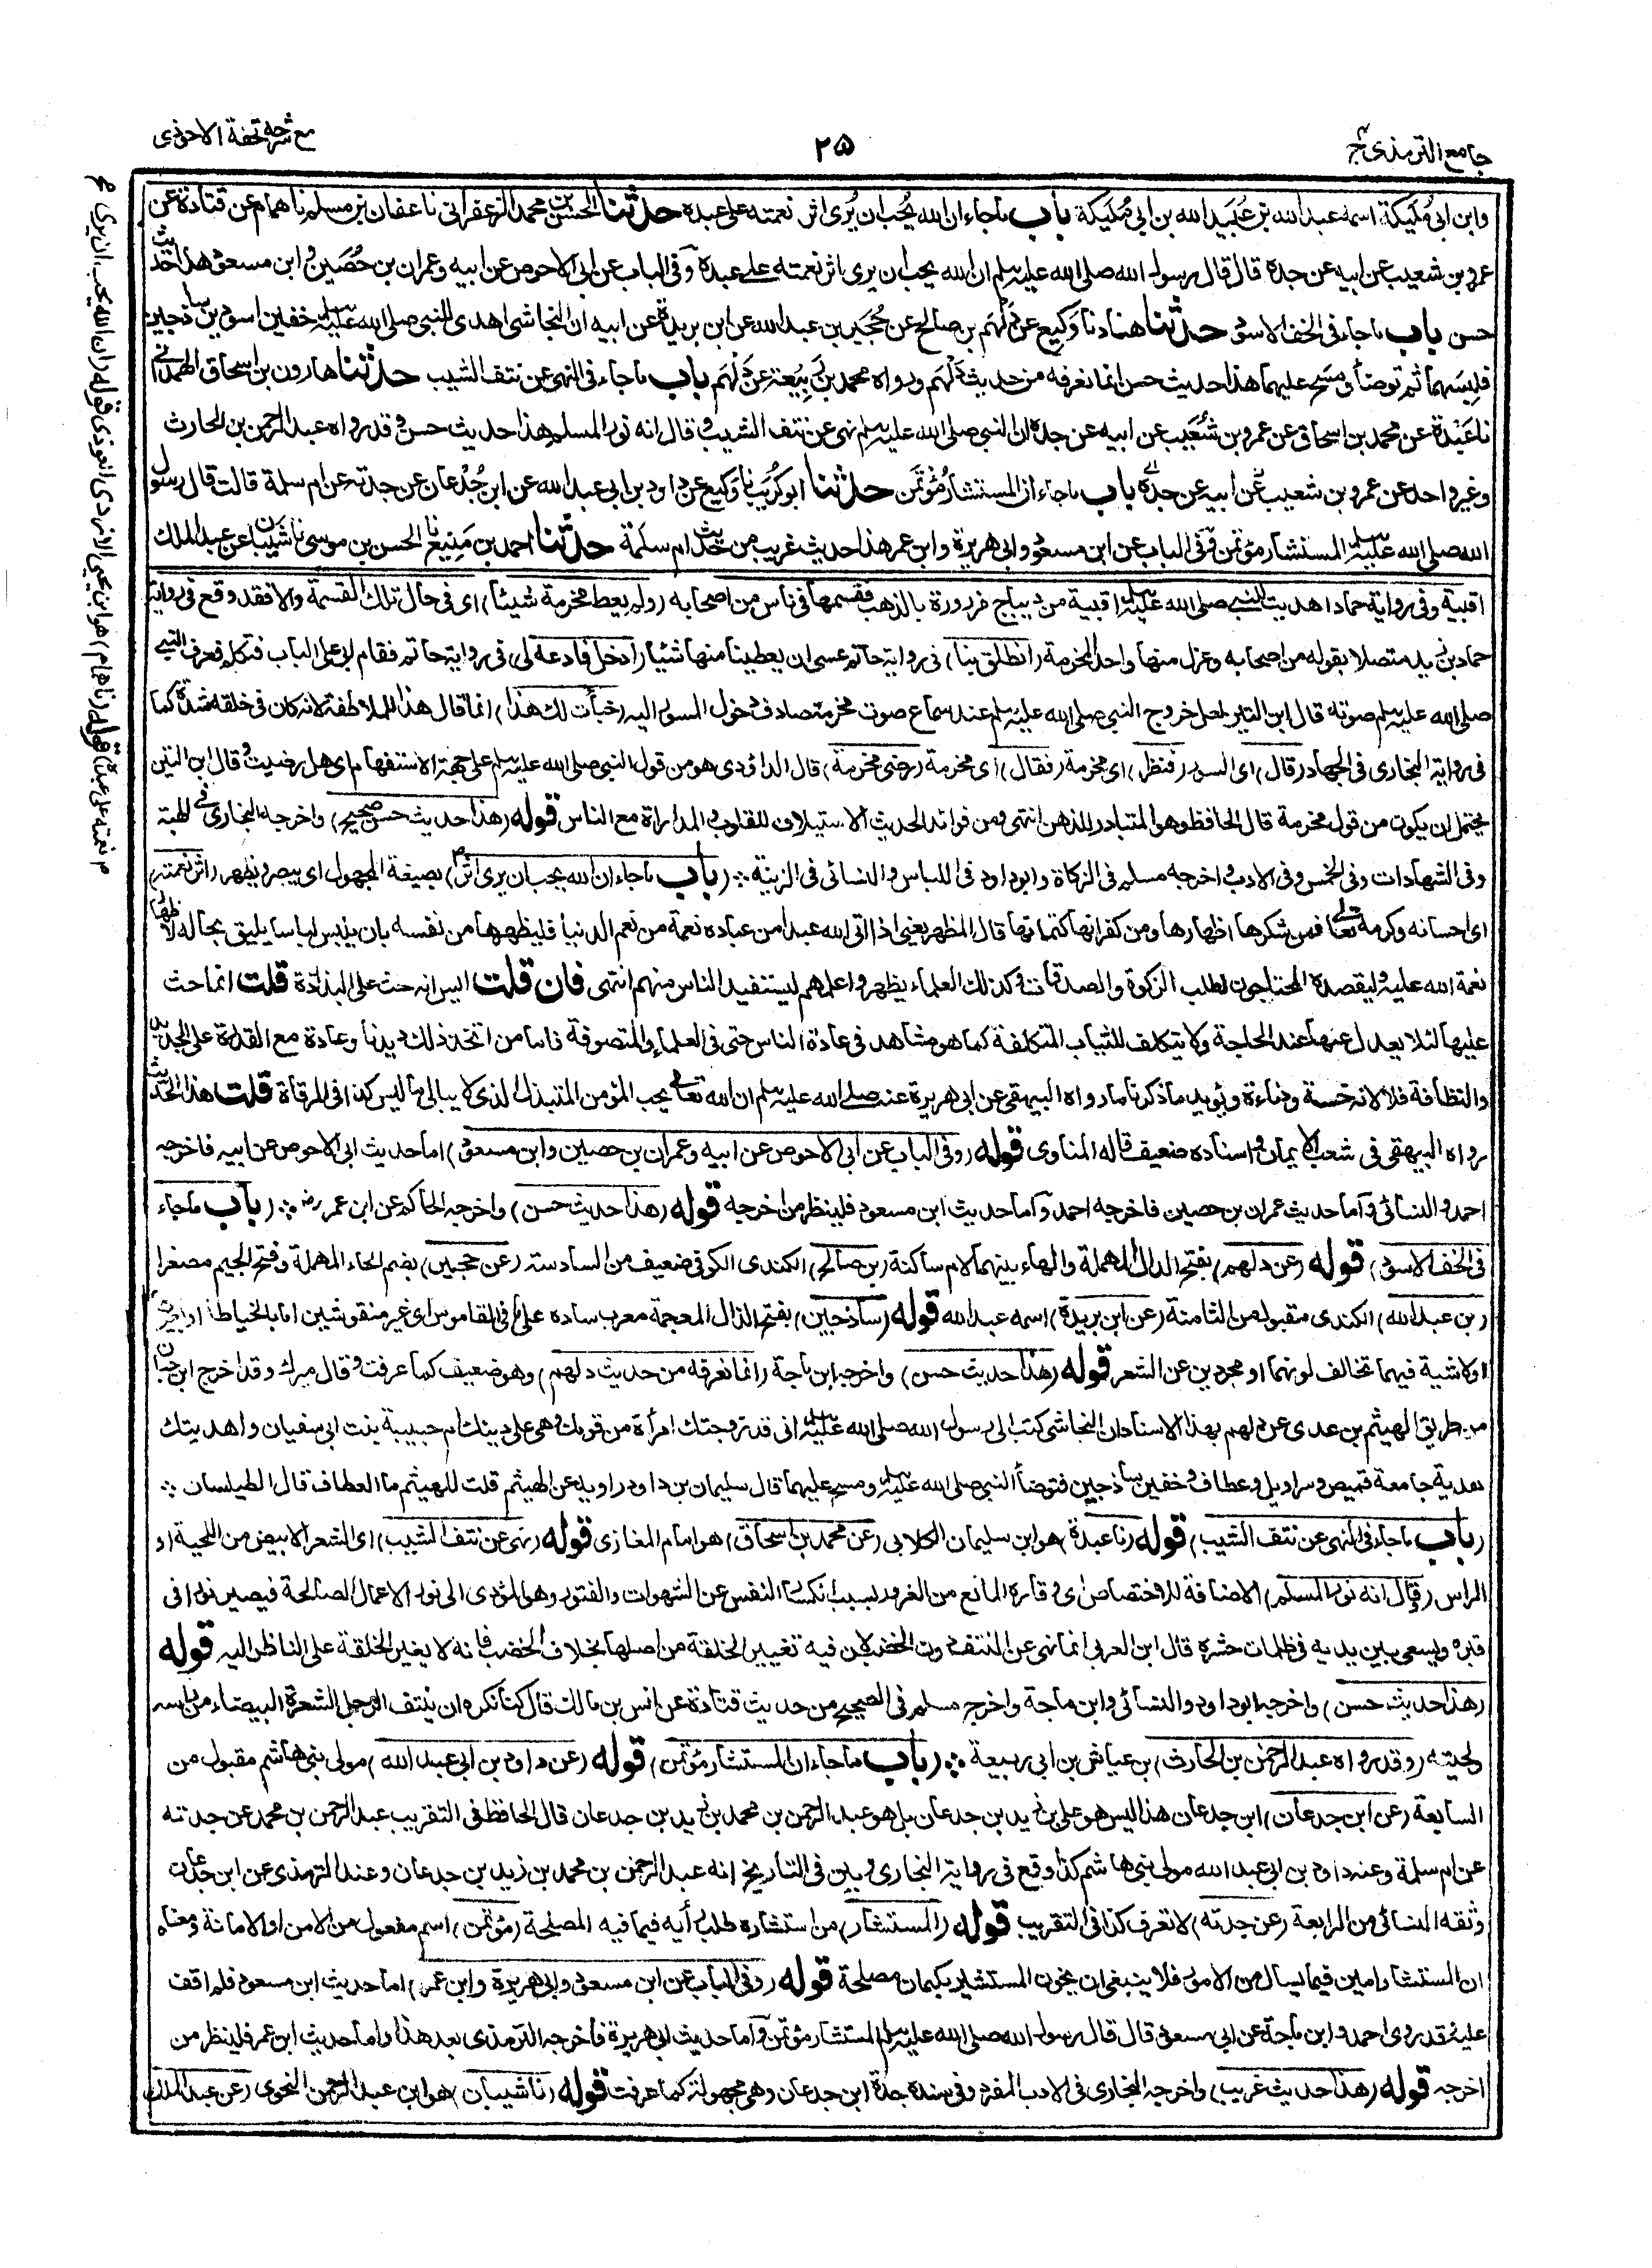 جامع الترمذی ج۴
۲۵
مع شرحه تحفة الاحوذی
وابن ابی مُلَیکة اسمه عبد الله بن عُبَید الله بن ابی مُلَیکة باب ماجاء ان الله یُحب ان یُرٰی اثر نعمته علی عبده حدثنا الحسن بن محمد الزعفرانی نا عفان بن مسلم نا همام عن قتادة عن
عمرو بن شعیب عن ابیه عن جده قال قال رسول الله صلی الله علیه وسلم ان الله یحب ان یری اثر نعمته علی عبده وفی الباب عن ابی الاحوص عن ابیه وعمران بن حُصَین وابن مسعود هذا حدیث
حسن باب ماجاء فی الخف الاسود حدثنا هناد نا وکیع عن دَلْهَم بن صالح عن حُجَیر بن عبد الله عن ابن بریدة عن ابیه ان النجاشی اهدی للنبی صلی الله علیه وسلم خفین اسودین ساذجین
فلبسهما ثم توضأ ومسح علیهما هذا حدیث حسن انما نعرفه من حدیث دَلْهَم ورواه محمد بن رَبِیْعة عن دَلْهَم باب ماجاء فی النهی عن نتف الشیب حدثنا هارون بن اسحاق الهمدانی
نا عَبْدة عن محمد بن اسحاق عن عمرو بن شُعَیب عن ابیه عن جده ان النبی صلی الله علیه وسلم نهی عن نتف الشیب وقال انه نور المسلم هذا حدیث حسن وقد رواه عبد الرحمن بن الحارث
وغیر واحد عن عمرو بن شعیب عن ابیه عن جده باب ماجاء ان المستشار مُؤْتَمَن حدثنا ابو کُرَیب نا وکیع عن داود بن ابی عبد الله عن ابن جُدْعان عن جدته عن ام سلمة قالت قال رسول
الله صلی الله علیه وسلم المستشار مؤتمن وفی الباب عن ابن مسعود وابی هریرة وابن عمر هذا حدیث غریب من حدیث ام سلمة حدثنا احمد بن مَنِیع نا الحسن بن موسی نا شیبان عن عبد الملک
اقبیة وفی روایة حماد اهدیت للنبی صلی الله علیه وسلم اقبیة من دیباج مزرورة بالذهب فقسمها فی ناس من اصحابه (ولم یعط مخرمة شیئا) ای فی حال تلک القسمة والا فقد وقع فی روایة
حماد بن زید متصلا بقوله من اصحابه وعزل منها واحدا لمخرمة (انطلق بنا) فی روایة حاتم عسی ان یعطینا منها شیئا (ادخل فادعه لی) فی روایة حاتم فقام ابی علی الباب فتکلم فعرف النبی
صلی الله علیه وسلم صوته قال ابن التین لعل خروج النبی صلی الله علیه وسلم عند سماع صوت مخرمة صادف دخول المسور الیه (خبأت لک هذا) انما قال هذا للملاطفة لانه کان فی خلقه شدة کما
فی روایة البخاری فی الجهاد (قال) ای المسور (فنظر) ای مخرمة (فقال) ای مخرمة (رضی مخرمة) قال الداؤدی هو من قول النبی صلی الله علیه وسلم علی جهة الاستفهام ای هل رضیت وقال ابن التین
یحتمل ان یکون من قول مخرمة قال الحافظ وهو المتبادر للذهن انتهی ومن فوائد الحدیث الاستیلاف للقلوب والمداراة مع الناس قوله (هذا حدیث حسن صحیح) واخرجه البخاری فی الهبة
وفی الشهادات وفی الخمس وفی الادب واخرجه مسلم فی الزکاة وابوداود فی اللباس والنسائی فی الزینة ؞ (باب ماجاء ان الله یحب ان یری اثر) بصیغة المجهول ای یبصر ویظهر (اثر نعمته)
ای احسانه وکرمه تعالی فمن شکرها اظهارها ومن کفرانها کتمانها قال المظهر یعنی اذا اتی الله عبدا من عباده نعمة من نعم الدنیا فلیظهرها من نفسه بان یلبس لباسا یلیق بحاله لاظهار
نعمة الله علیه ولیقصده المحتاجون لطلب الزکوة والصدقات وکذلک العلماء یظهروا علمهم لیستفید الناس منهم انتهی فان قلت الیس انه حث علی البذاذة قلت انما حث
علیها لئلا یعدل عنها عند الحاجة ولا یتکلف للثیاب المتکلفة کما هو مشاهد فی عادة الناس حتی فی العلماء والمتصوفة فاما من اتخذ ذلک دیدنا وعادة مع القدرة علی الجدید
والنظافة فلا لانه خسة ودناءة ویؤید ماذکرنا مارواه البیهقی عن ابی هریرة عنه صلی الله علیه وسلم ان الله تعالی یحب المؤمن المتبذل الذی لا یبالی ما لبس کذا فی المرقاة قلت هذا الحدیث
رواه البیهقی فی شعب الایمان واسناده ضعیف قاله المناوی قوله (وفی الباب عن ابی الاحوص عن ابیه وعمران بن حصین وابن مسعود) اما حدیث ابی الاحوص عن ابیه فاخرجه
احمد والنسائی واما حدیث عمران بن حصین فاخرجه احمد واما حدیث ابن مسعود فلینظر من اخرجه قوله (هذا حدیث حسن) واخرجه الحاکم عن ابن عمر رضـ ؞ (باب ماجاء
فی الخف الاسود) قوله (عن دلهم) بفتح الدال المهملة والهاء بینهما لام ساکنة (بن صالح) الکندی الکوفی ضعیف من السادسة (عن حجیر) بضم الحاء المهملة وفتح الجیم مصغرا
(بن عبد الله) الکندی مقبول من الثامنة (عن ابن بریدة) اسمه عبد الله قوله (ساذجین) بفتح الذال المعجمة معرب ساده علی ما فی القاموس ای غیر منقوشین اما بالخیاطة او بغیرها
اولا شیة فیهما تخالف لونهما او مجردین عن الشعر قوله (هذا حدیث حسن) واخرجه ابن ماجة (انما نعرفه من حدیث دلهم) وهو ضعیف کما عرفت وقال میرک وقد اخرج ابن حبان
من طریق الهیثم بن عدی عن دلهم بهذا الاسناد ان النجاشی کتب الی رسول الله صلی الله علیه وسلم انی قد زوجتک امرأة من قومک وهی علی دینک ام حبیبة بنت ابی سفیان واهدیتک
هدیة جامعة قمیص وسراویل وعطاف وخفین ساذجین فتوضأ النبی صلی الله علیه وسلم ومسح علیهما قال سلیمان بن داود راویه عن الهیثم قلت للهیثم ما العطاف قال الطیلسان ؞
(باب ماجاء فی النهی عن نتف الشیب) قوله (نا عبدة) هو ابن سلیمان الکلابی (عن محمد بن اسحاق) هو امام المغازی قوله (نهی عن نتف الشیب) ای الشعر الابیض من اللحیة او
الراس (وقال انه نور المسلم) الاضافة للاختصاص ای وقاره المانع من الغرور بسبب انکسار النفس عن الشهوات والفتور وهو المؤدی الی نور الاعمال الصالحة فیصیر نورا فی
قبره ویسعی بین یدیه فی ظلمات حشره قال ابن العربی انما نهی عن النتف دون الخضب لان فیه تغییر الخلقة من اصلها بخلاف الخضب فانه لا یغیر الخلقة علی الناظر الیه قوله
(هذا حدیث حسن) واخرجه ابوداود والنسائی وابن ماجة واخرج مسلم فی الصحیح من حدیث قتادة عن انس بن مالک قال کنا نکره ان ینتف الرجل الشعرة البیضاء من راسه
ولحیته (وقد رواه عبد الرحمن بن الحارث) بن عیاش بن ابی ربیعة ؞ (باب ماجاء ان المستشار مؤتمن) قوله (عن داود بن ابی عبد الله) مولی بنی هاشم مقبول من
السابعة (عن ابن جدعان) ابن جدعان هذا لیس هو علی بن زید بن جدعان بل هو عبد الرحمن بن محمد بن زید بن جدعان قال الحافظ فی التقریب عبد الرحمن بن محمد عن جدته
عن ام سلمة وعنه داود بن ابی عبد الله مولی بنی هاشم کذا وقع فی روایة البخاری وبین فی التاریخ انه عبد الرحمن بن محمد بن زید بن جدعان وعند الترمذی عن ابن جدعان
وثقه النسائی من الرابعة (عن جدته) لا تعرف کذا فی التقریب قوله (المستشار) من استشاره طلب رأیه فیما فیه المصلحة (مؤتمن) اسم مفعول من الامن او الامانة ومعناه
ان المستشار امین فیما یسال من الامور فلا ینبغی ان یخون المستشیر بکتمان مصلحة قوله (وفی الباب عن ابن مسعود وابی هریرة وابن عمر) اما حدیث ابن مسعود فلم اقف
علیه وقد روی احمد وابن ماجة عن ابی مسعود قال قال رسول الله صلی الله علیه وسلم المستشار مؤتمن واما حدیث ابی هریرة فاخرجه الترمذی بعد هذا واما حدیث ابن عمر فلینظر من
اخرجه قوله (هذا حدیث غریب) واخرجه البخاری فی الادب المفرد وفی سنده جدة ابن جدعان وهی مجهولة کما عرفت قوله (نا شیبان) هو ابن عبد الرحمن النحوی (عن عبد الملک
قوله (نا همام) هو ابن یحیی الازدی العوذی قوله (ان الله یحب ان یری
نعمته علی عبده